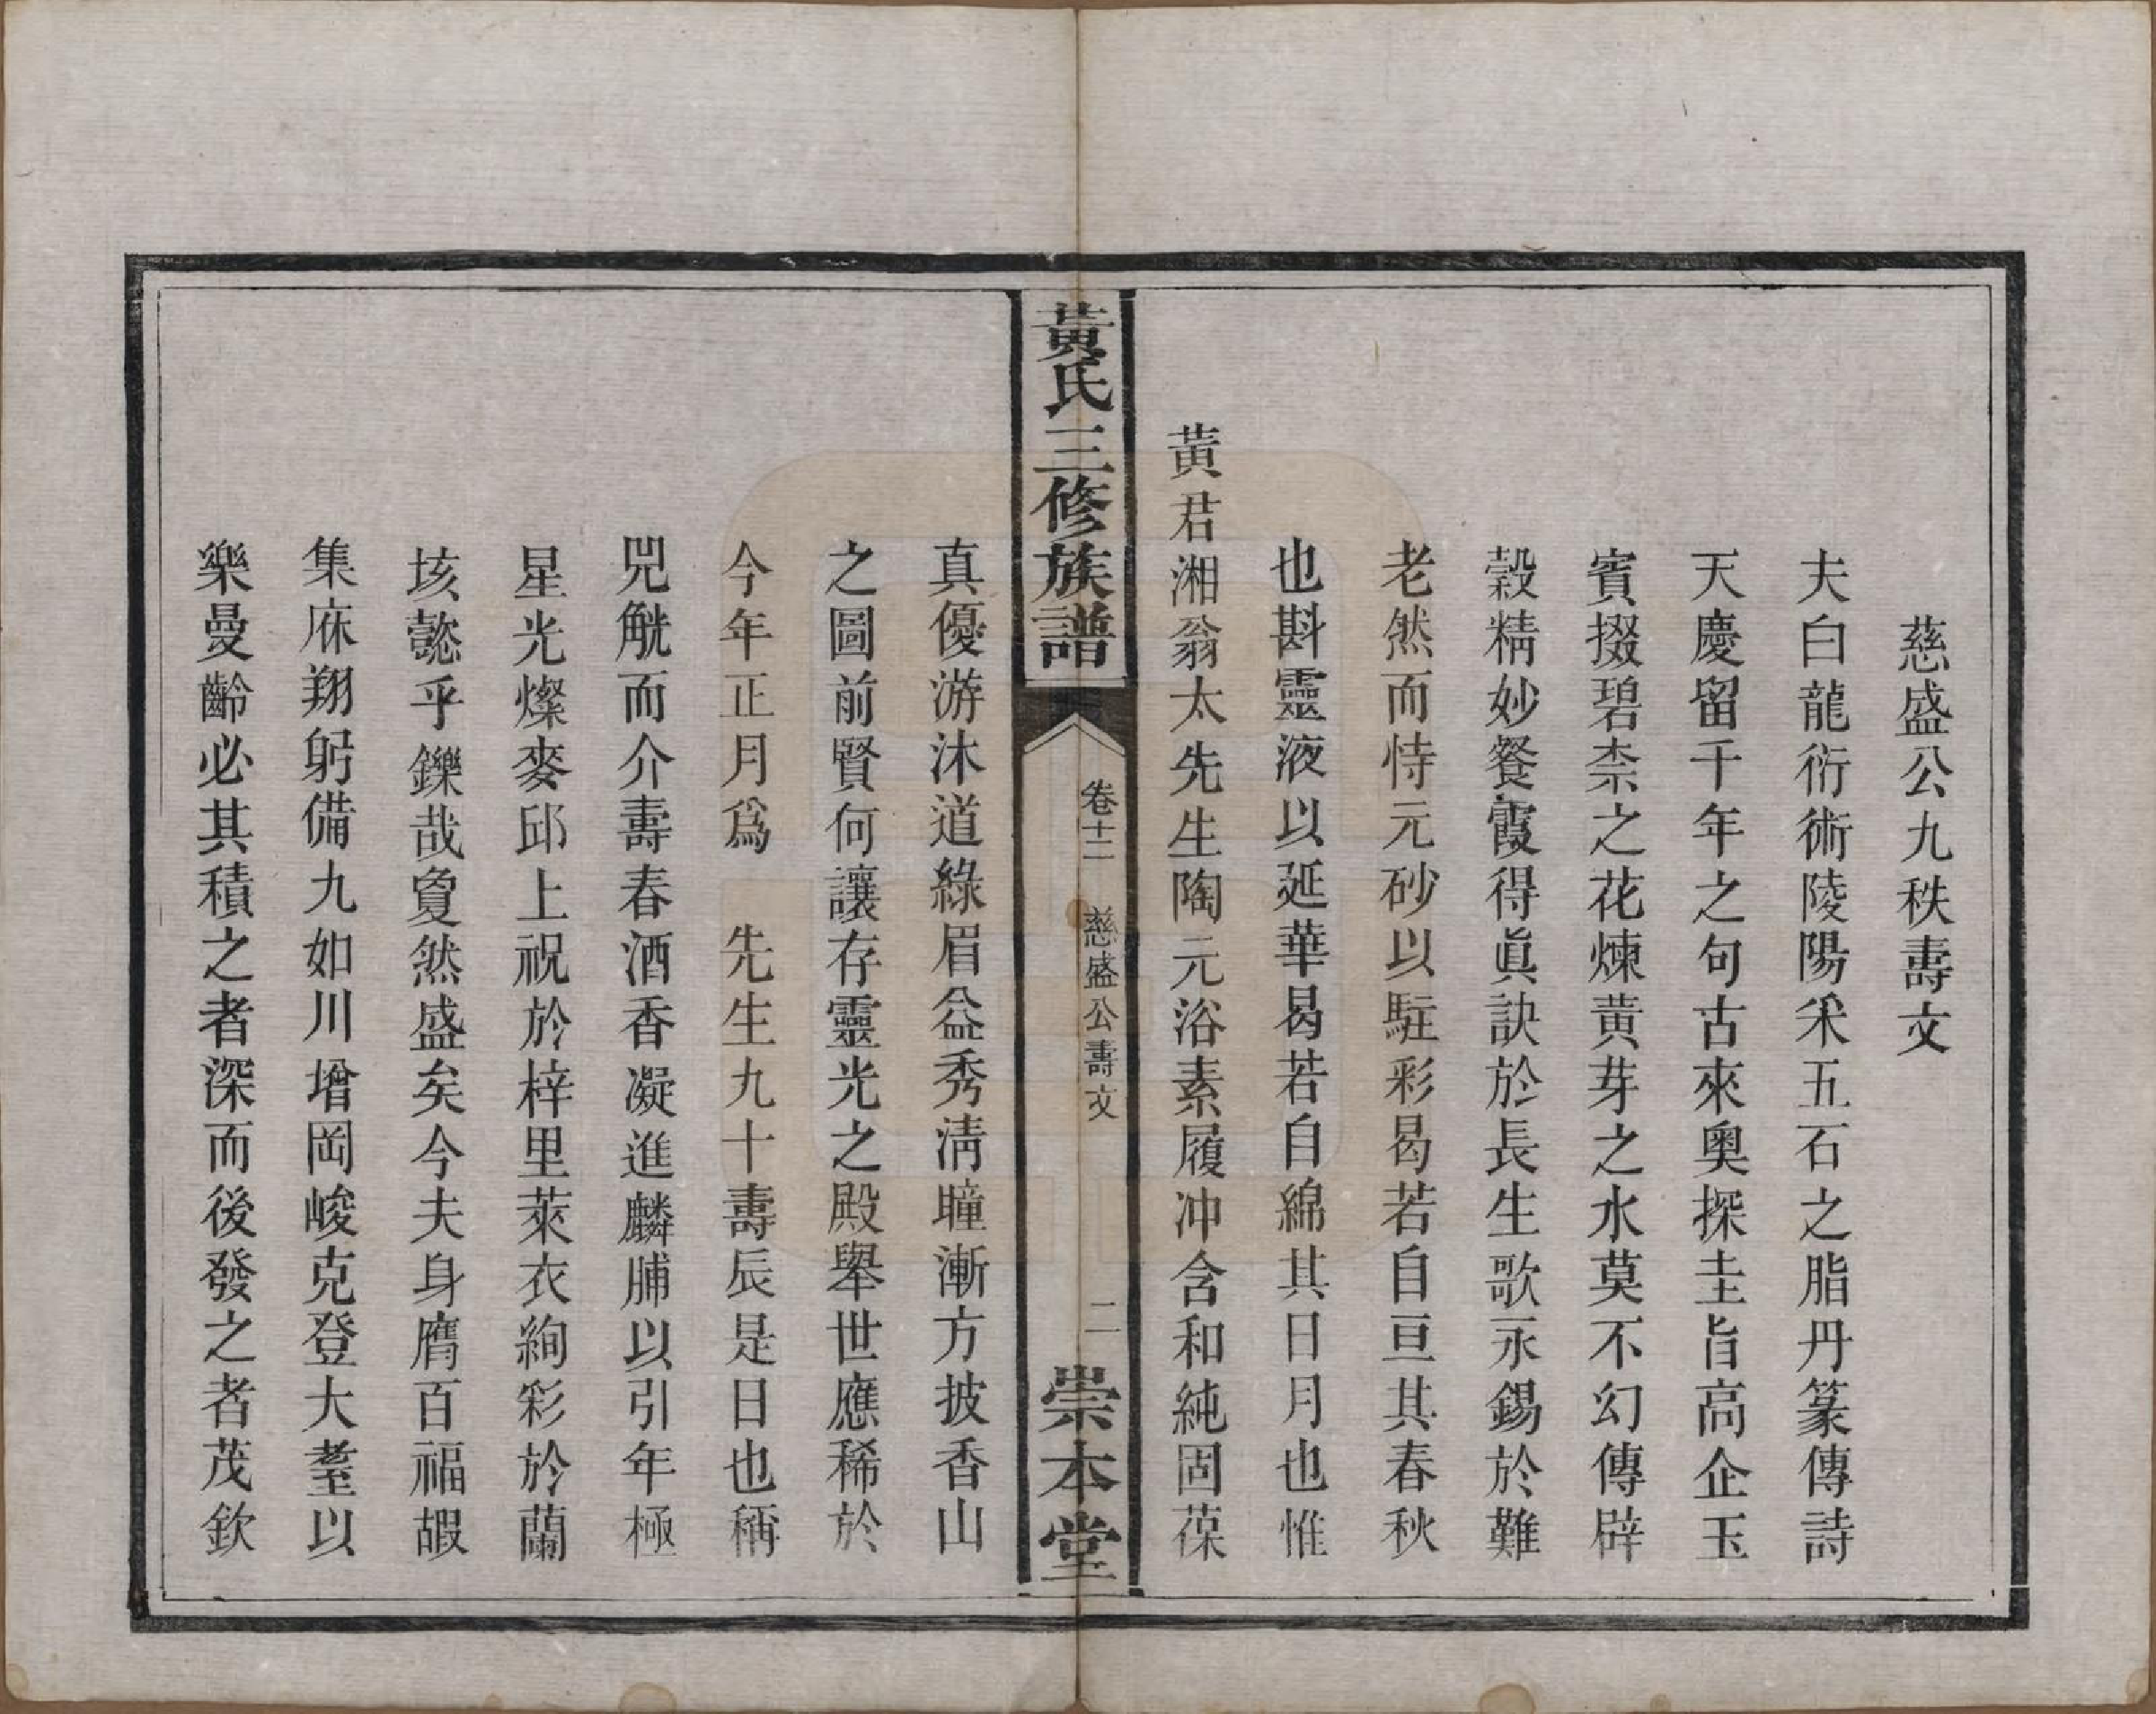 慈盛公九秩壽文
夫白龍衍術陵陽采五石之脂丹篆傳詩
天慶留千年之句古來奧探圭旨高企玉
賓掇碧柰之花煉黃芽之水莫不幻傳辟
穀精妙餐霞得眞訣於長生歌永錫於難
老然而恃元砂以駐彩曷若自亘其春秋
也斟靈液以延華曷若自綿其日月也惟
黃君湘翁太先生陶元浴素履沖含和純固葆
黃氏三修族譜
卷十二
慈盛公壽文
二
崇本堂
真優游沐道綠眉益秀淸瞳漸方披香山
之圖前賢何讓存靈光之殿舉世應稀於
今年正月爲　先生九十壽辰是日也稱
兕觥而介壽春酒香凝進麟脯以引年極
星光燦麥邱上祝於梓里萊衣絢彩於蘭
垓懿乎鑠哉敻然盛矣今夫身膺百福嘏
集庥翔躬備九如川增岡峻克登大耋以
樂曼齡必其積之者深而後發之者茂欽